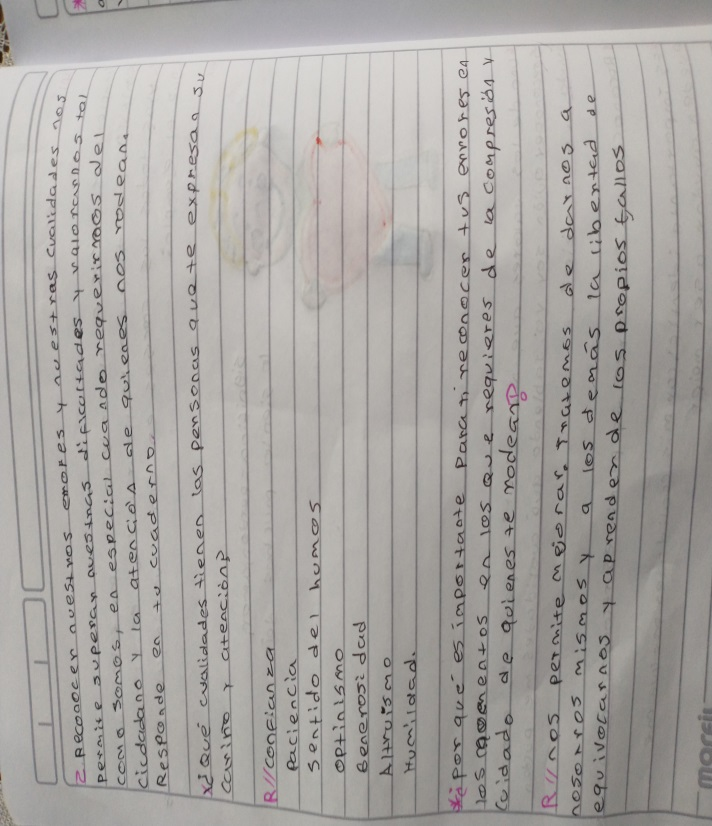 2 Reconocer nuestros errores y nuestras cualidades nos
permite superar nuestras dificultades y valorarnos tal
como somos, en especial cuando requerirmos del
cicdadano y la atención de quienes nos rodean.
Responde en tu cuaderno.
*¿Qué cualidades tienen las personas que te expresan su
cariño y atención?
R// confianza
Paciencia
sentido del humos
optinismo
Generosidad
Altruismo
Humildad.
*¿Por qué es importante para ti reconocer tus errores en
los momentos en los que requieres de la compresión y
cuidado de quienes te rodean?
R// nos permite mejorar. Tratemos de darnos a
nosotros mismos y a los demás la libertad de
equivocarnos y aprender de los propios fallos